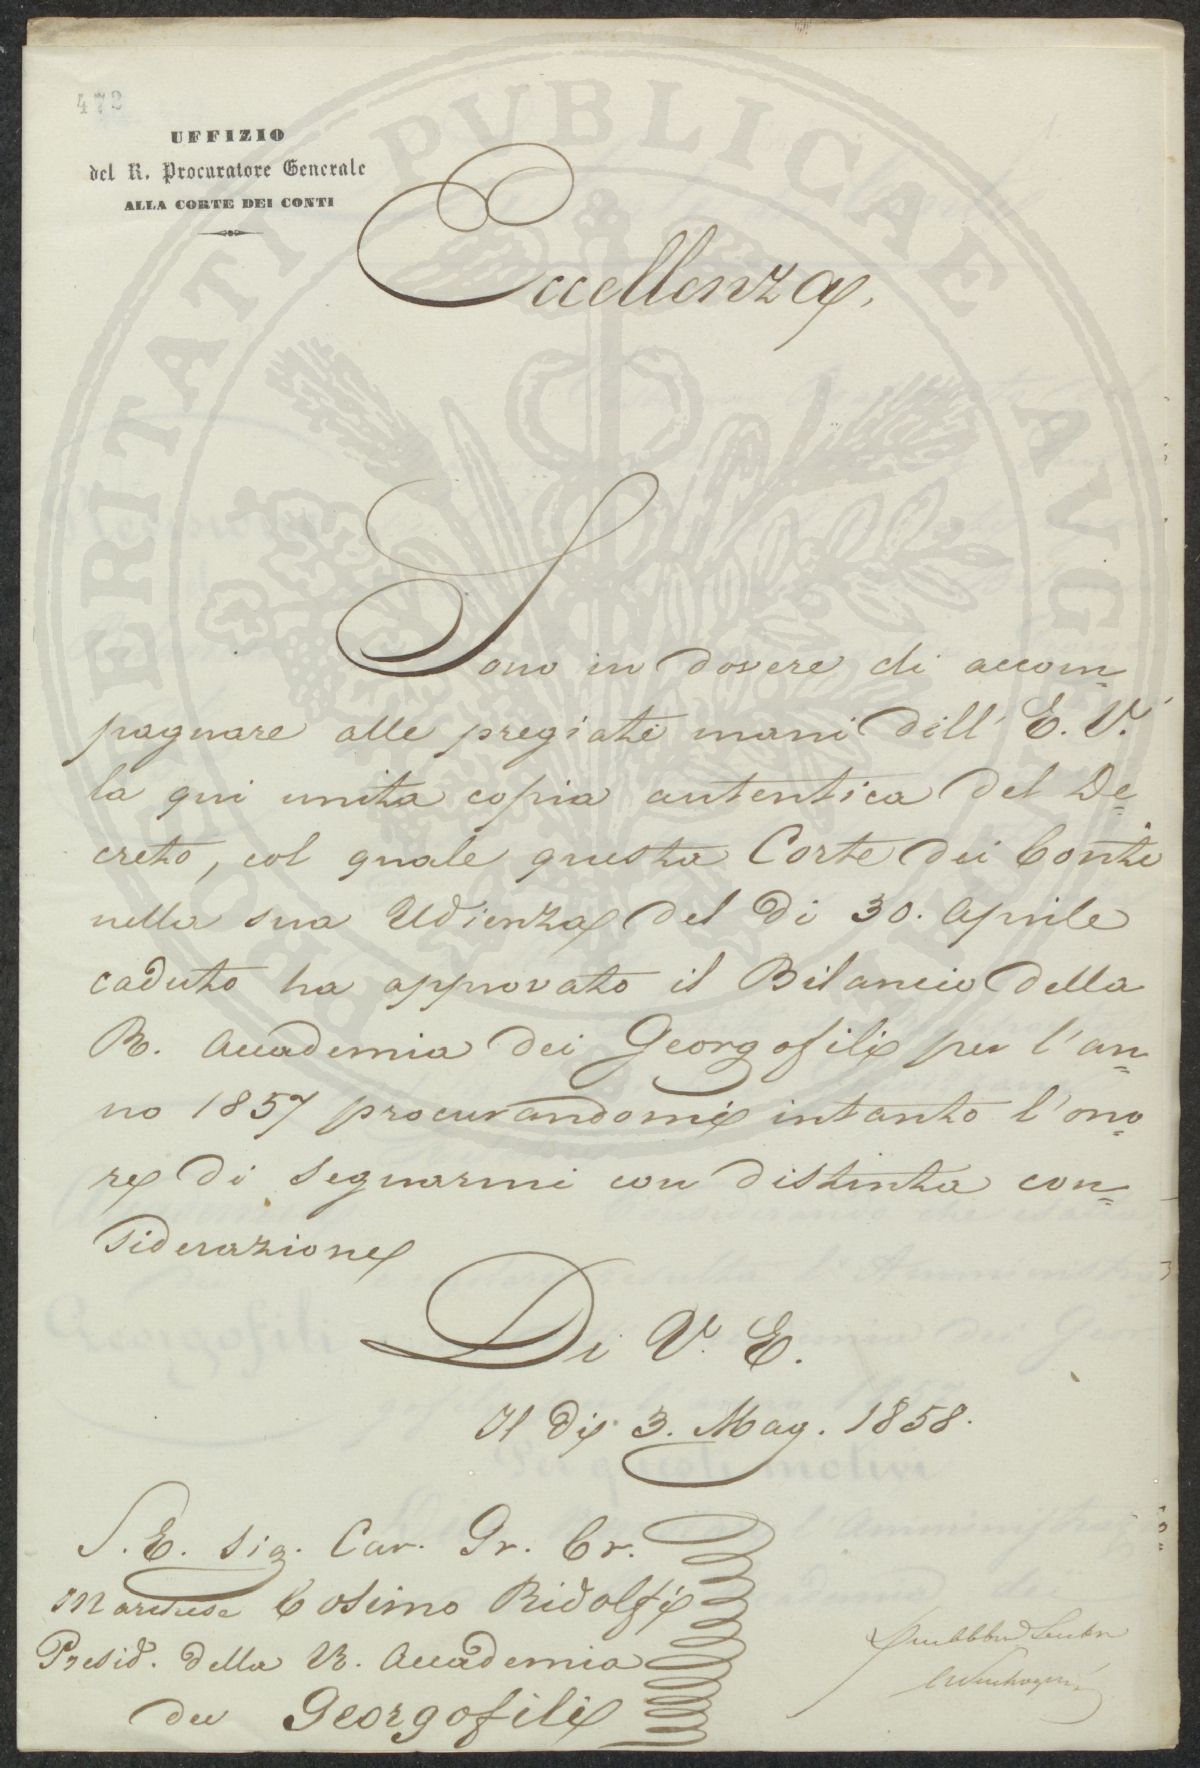 472
UFFIZIO
del R. Procuratore Generale
ALLA CORTE DEI CONTI
Eccellenza,
Sono in dovere di accom=
pagnare alle pregiate mani dell' E. V.
la qui unita copia autentica del De=
creto, col quale questa Corte dei Conti
nella sua Udienza del dì 30. Aprile
caduto ha approvato il Bilancio della
R. Accademia dei Georgofili per l'an=
no 1857 procurandomi intanto l'ono=
re di segnarmi con distinta con=
siderazione
Di V. E.
Il dì 3. Mag. 1858.
S. E. Sig. Cav. Gr. Cr.
Marchese Cosimo Ridolfi
Presid. della R. Accademia
dei Georgofili
PROSPERITATI PUBLICAE AUGENDAE